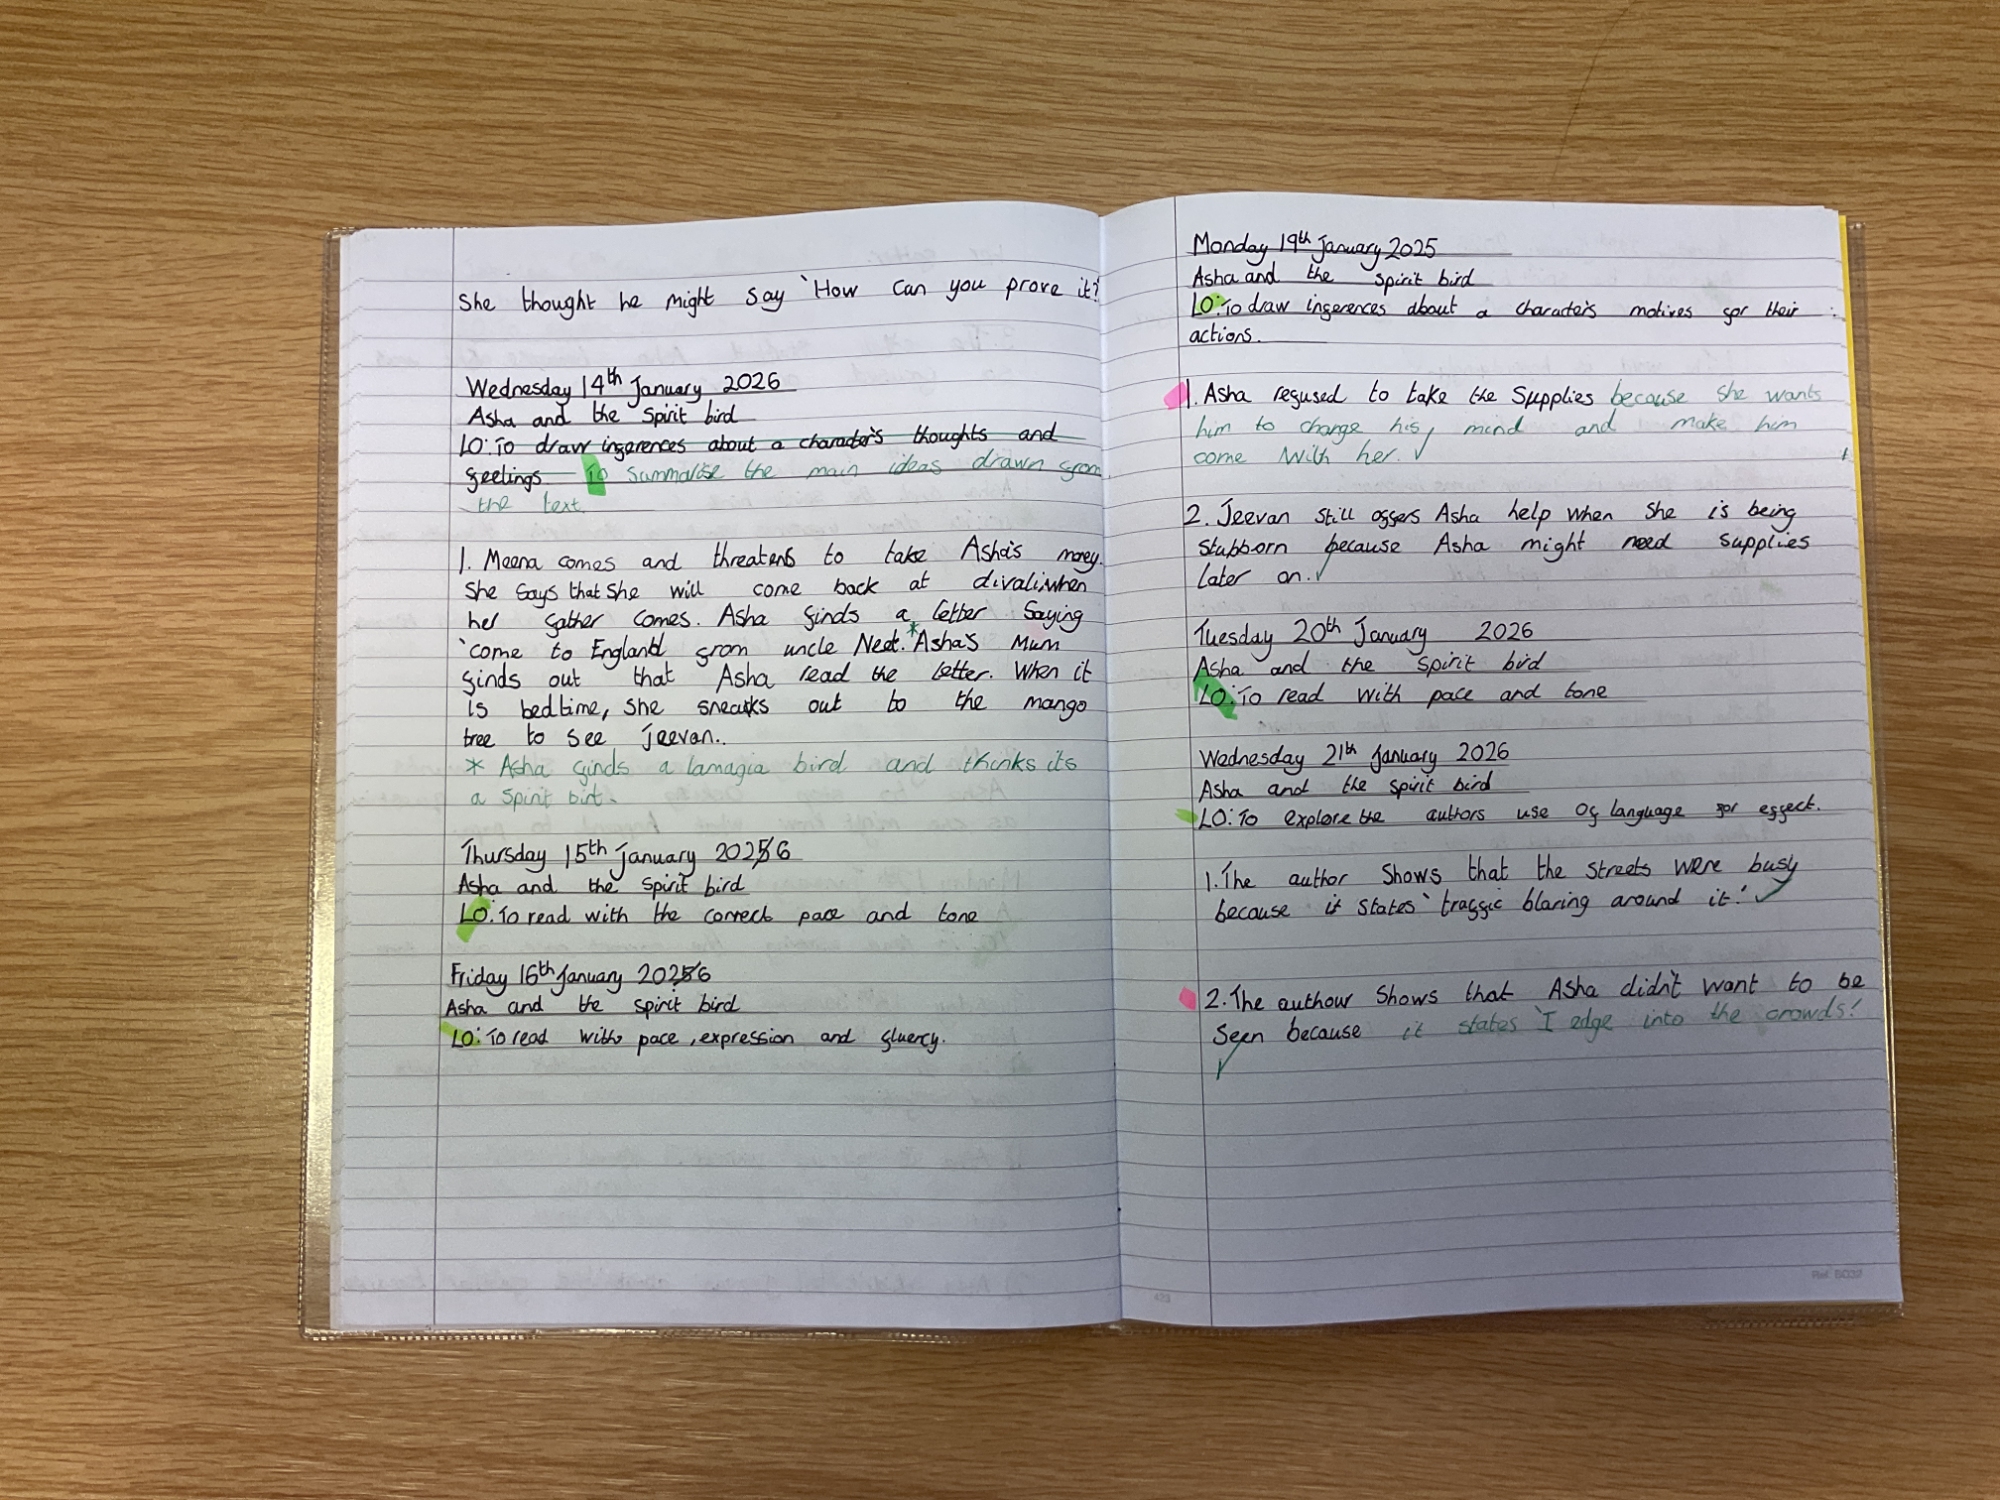 She thought he might say 'How can you prove it?
Wednesday 14th January 2026
Asha and the Spirit bird
LO: To draw inferences about a character's thoughts and
feelings To summarise the main ideas drawn from
the text.
1. Meena comes and threatens to take Asha's money.
She says that she will come back at divali when
her father comes. Asha finds a letter saying
'come to England from uncle Neel.* Asha's Mum
finds out that Asha read the letter. When it
is bedtime, she sneaks out to the mango
tree to see Jeevan..
* Asha finds a lamagia bird and thinks its
a spirit birt.
Thursday 15th January 2026
Asha and the spirit bird
LO: To read with the correct pace and tone
Friday 16th January 2026
Asha and the spirit bird
LO: To read with pace, expression and fluency.
Monday 19th January 2025
Asha and the spirit bird
LO: To draw inferences about a character's motives for their
actions.
1. Asha refused to take the supplies because she wants
him to change his mind and make him
come with her.
2. Jeevan still offers Asha help when she is being
stubborn because Asha might need supplies
later on.
Tuesday 20th January 2026
Asha and the spirit bird
LO: To read with pace and tone
Wednesday 21th January 2026
Asha and the spirit bird
LO: To explore the authors use of language for effect.
1. The author shows that the streets were busy
because it states 'traffic blaring around it.'
2. The authour shows that Asha didn't want to be
seen because it states 'I edge into the crowds.'